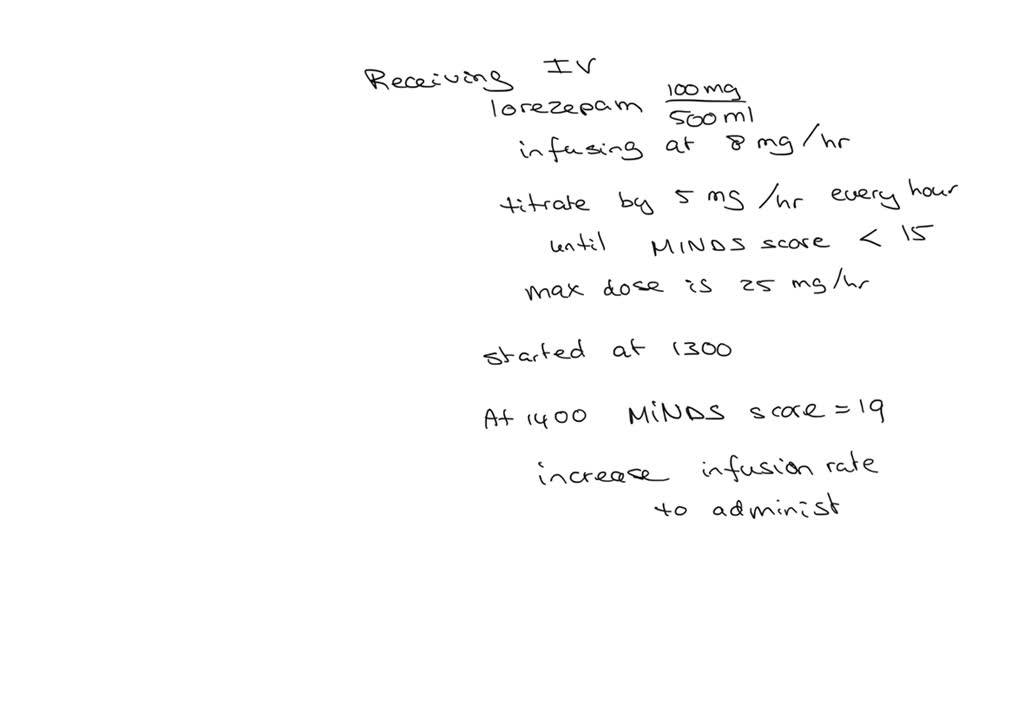 Receiving IV
lorezepam 100mg/500ml
infusing at 8 mg/hr
titrate by 5 mg/hr every hour
until MINDS score < 15
max dose is 25 mg/hr
started at 1300
At 1400 MINDS score = 19
increase infusion rate
to administ